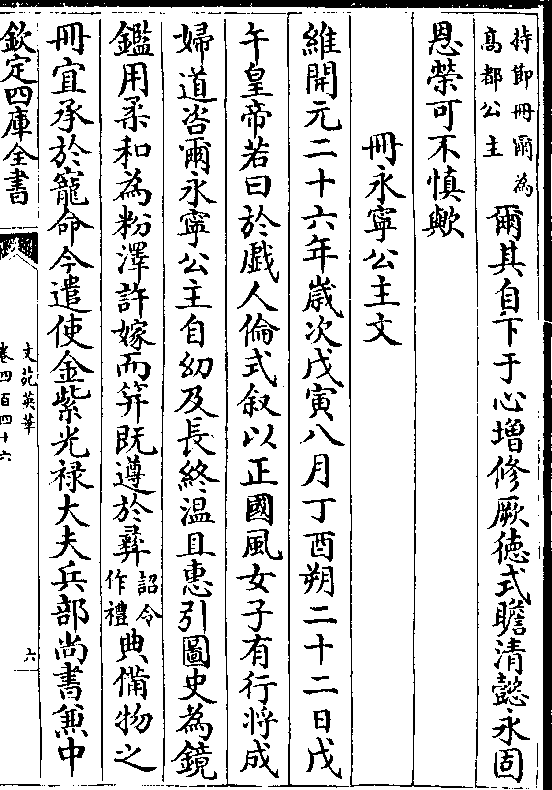 持節冊爾為
高都公主
爾其自下于心增修厥德式瞻清懿永固
恩榮可不慎歟
冊永寧公主文
維開元二十六年歲次戊寅八月丁酉朔二十二日戊
午皇帝若曰於戲人倫式敘以正國風女子有行將成
婦道咨爾永寧公主自幼及長終溫且惠引圖史為鏡
鑑用柔和為粉澤許嫁而笄既遵於彝
詔令
作禮
典備物之
冊宜承於寵命今遣使金紫光祿大夫兵部尚書兼中
欽定四庫全書
文苑英華
卷四百四十六
六